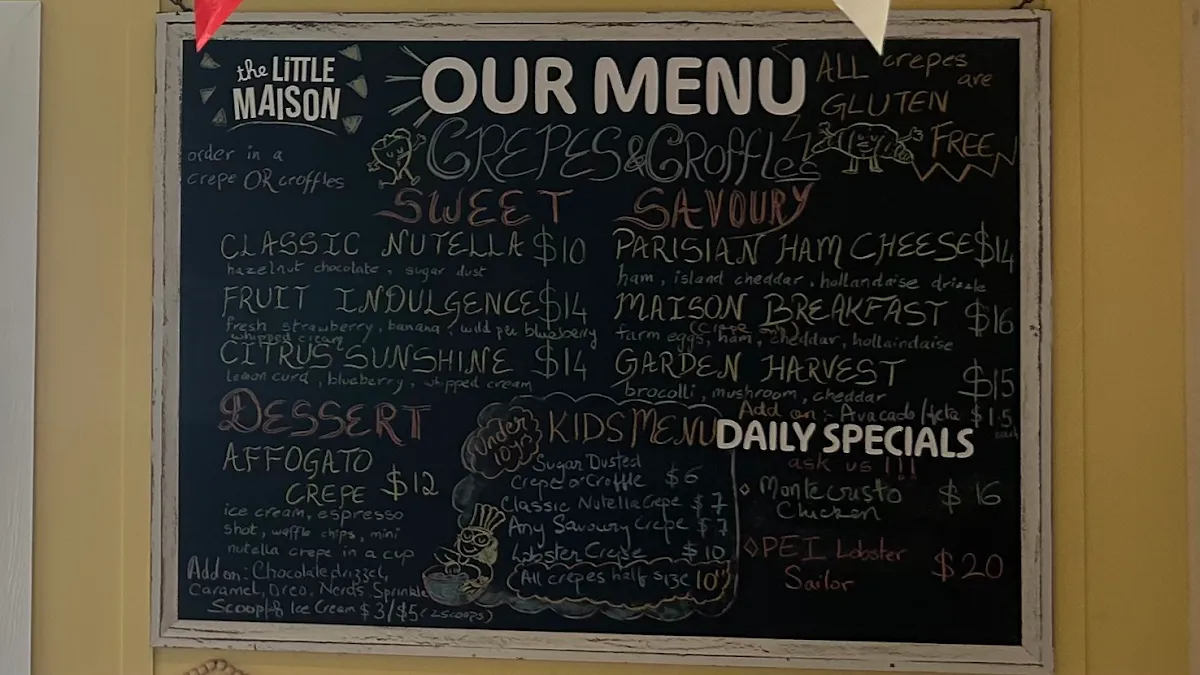 the LiTTLE
MAISON
OUR MENU
ALL crepes
are
GLUTEN
FREE
CREPES & Croffles
order in a
crepe OR croffles
SWEET
CLASSIC NUTELLA $10
hazelnut chocolate, sugar dust
FRUIT INDULGENCE $14
fresh strawberry, banana, wild PEI blueberry
whipped cream
CITRUS SUNSHINE $14
lemon curd, blueberry, whipped cream
SAVOURY
PARISIAN HAM CHEESE $14
ham, island cheddar, hollandaise drizzle
MAISON BREAKFAST $16
farm eggs, ham, cheddar, hollaindaise
GARDEN HARVEST $15
brocolli, mushroom, cheddar
Add on :- Avacado/feta $1.5
each
DESSERT
AFFOGATO
CREPE $12
ice cream, espresso
shot, waffle chips, mini
nutella crepe in a cup
Add on: Chocolate drizzel,
Caramel, Oreo, Nerds, Sprinkle
Scoop of Ice Cream $3/$5 (2 scoops)
Under
10yrs
KIDS MENU
Sugar Dusted
Crepe or Croffle $6
Classic Nutella Crepe $7
Any Savoury Crepe $7
Lobster Crepe $10
All crepes half size 10"
DAILY SPECIALS
ask us !!!
Montecristo
Chicken $16
PEI Lobster
Sailor $20